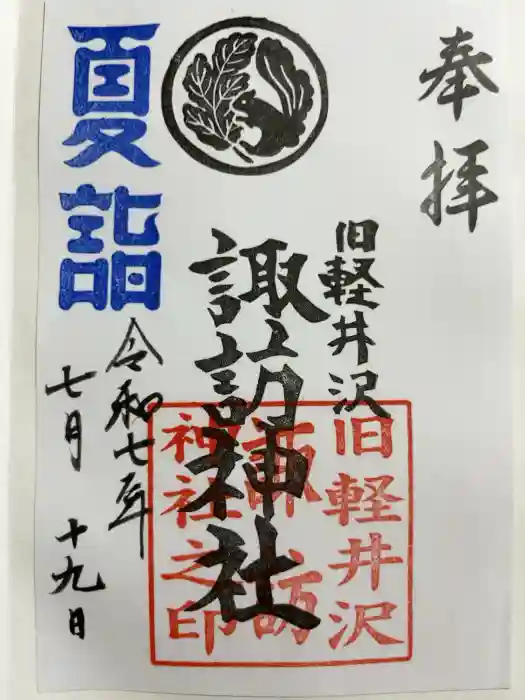 奉拝
旧軽井沢
諏訪神社
旧軽井沢
諏訪
神社之印
夏詣
令和七年
七月十九日